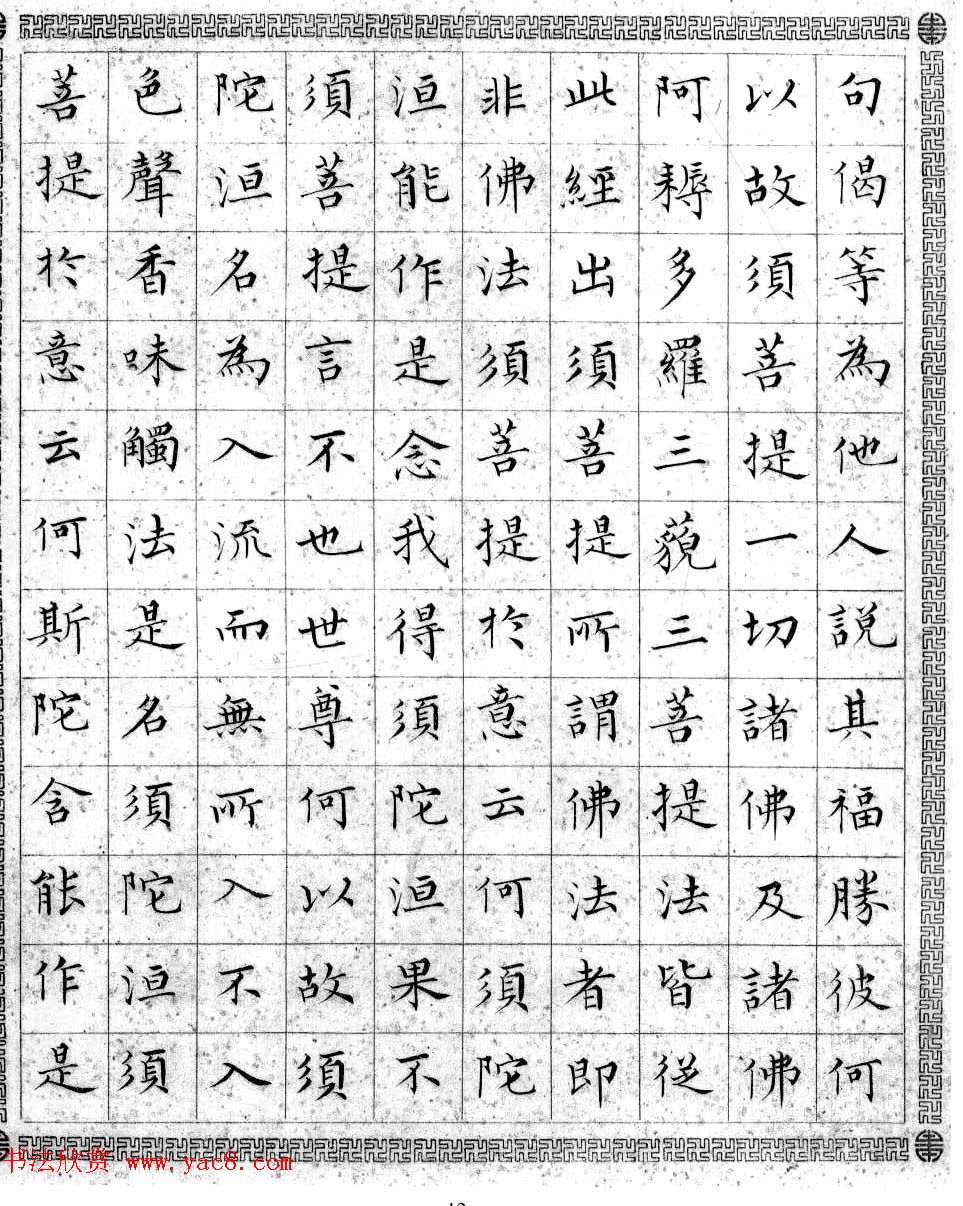 句偈等為他人說其福勝彼何
以故須菩提一切諸佛及諸佛
阿耨多羅三藐三菩提法皆從
此經出須菩提所謂佛法者即
非佛法須菩提於意云何須陀
洹能作是念我得須陀洹果不
須菩提言不也世尊何以故須
陀洹名為入流而無所入不入
色聲香味觸法是名須陀洹須
菩提於意云何斯陀含能作是
书法欣赏 www.yac8.com